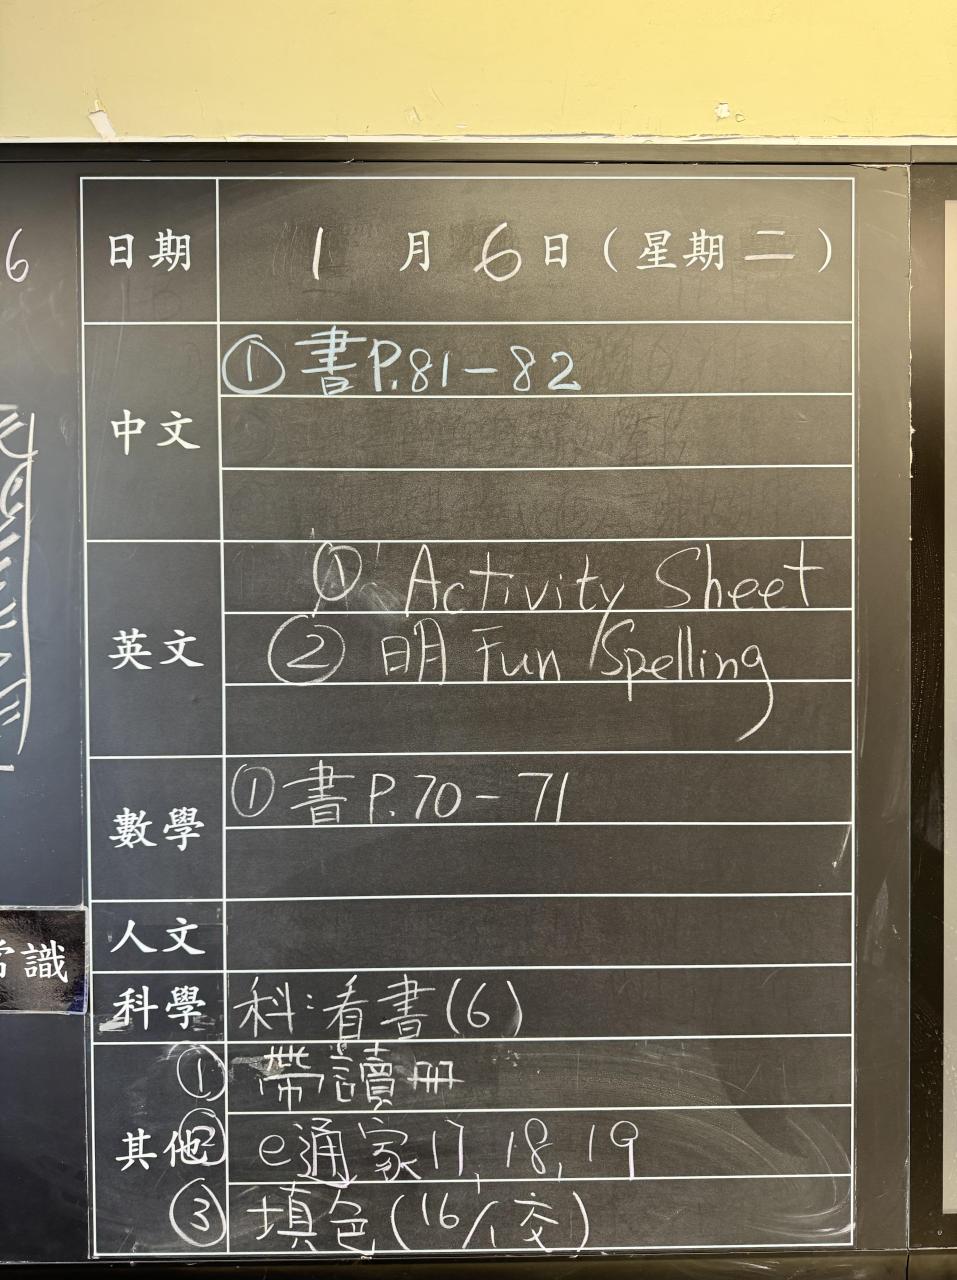 日期 1月6日（星期二）
中文
① 書P.81-82
英文
① Activity Sheet
② 明 Fun Spelling
數學
① 書P.70-71
人文
科學
科:看書(6)
其他
① 帶讀冊
② e通家17, 18, 19
③ 填色(16/1交)
6
常識